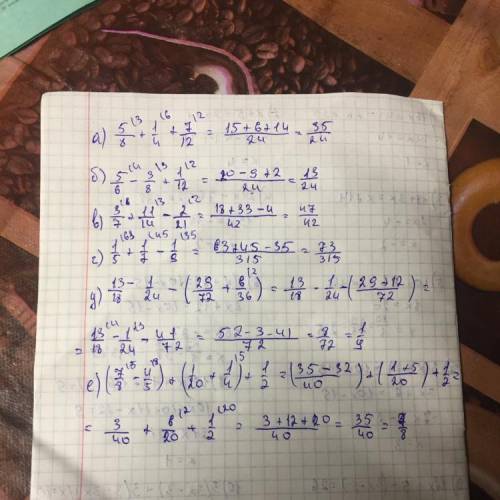 а) 5/8^(3 + 1/4^(6 + 7/12^(2 = (15+6+14)/24 = 35/24
б) 5/6^(4 - 3/8^(3 + 1/12^(2 = (20-9+2)/24 = 13/24
в) 3/7^(6 + 11/14^(3 - 2/21^(2 = (18+33-4)/42 = 47/42
г) 1/5^(63 + 1/7^(45 - 1/9^(35 = (63+45-35)/315 = 73/315
д) 13/18 - 1/24 - (29/72 + 6/36^(2) = 13/18 - 1/24 - (29+12)/72) =
= 13/18^(4 - 1/24^(3 - 41/72 = (52-3-41)/72 = 8/72 = 1/9
е) (7/8^(5 - 4/5^(8) + (1/20 + 1/4)^(5 + 1/2 = (35-32)/40) + (1+5)/20) + 1/2 =
= 3/40 + 6/20^(2 + 1/2^(20 = (3+12+20)/40 = 35/40 = /8